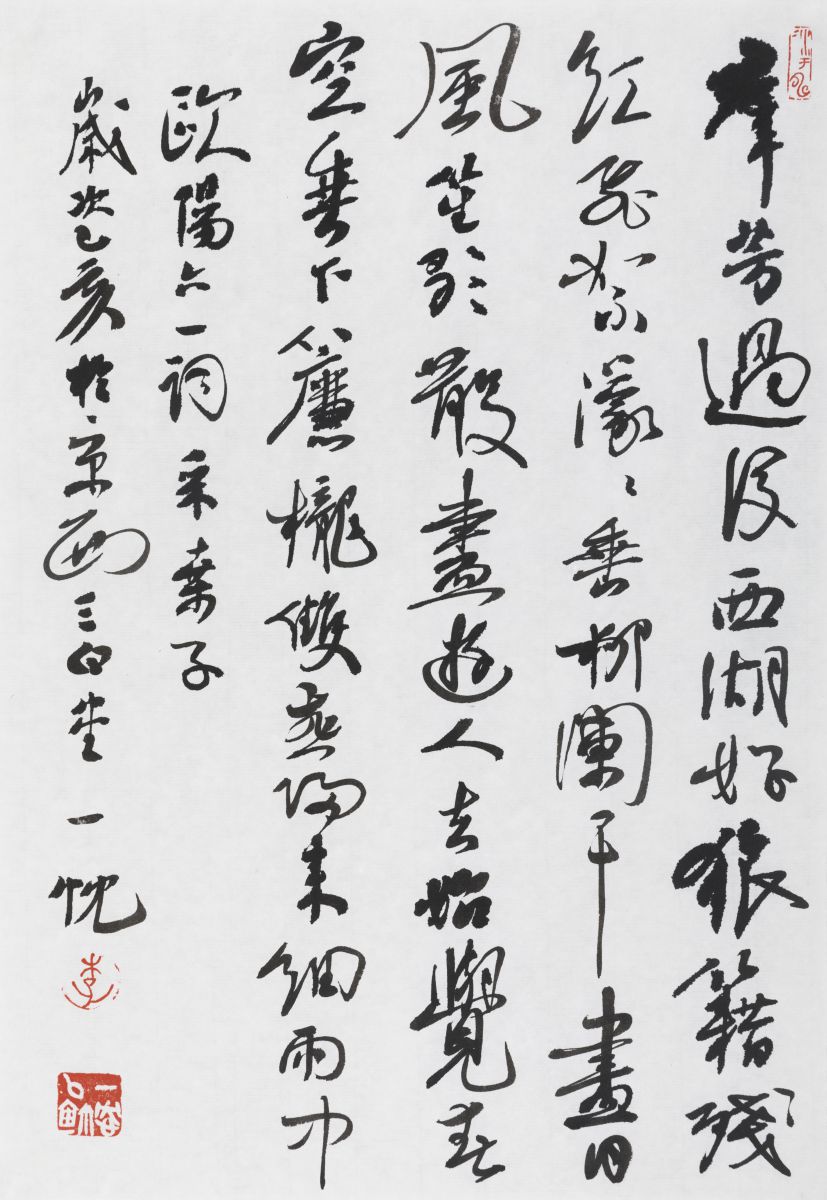 羣芳過後西湖好狼籍殘
紅飛絮濛〻垂柳瀾干盡日
風笙歌散盡遊人去始覺春
空垂下簾櫳雙燕歸來細雨中
歐陽六一詞采桑子
歲次己亥於京西三白堂一忱
李